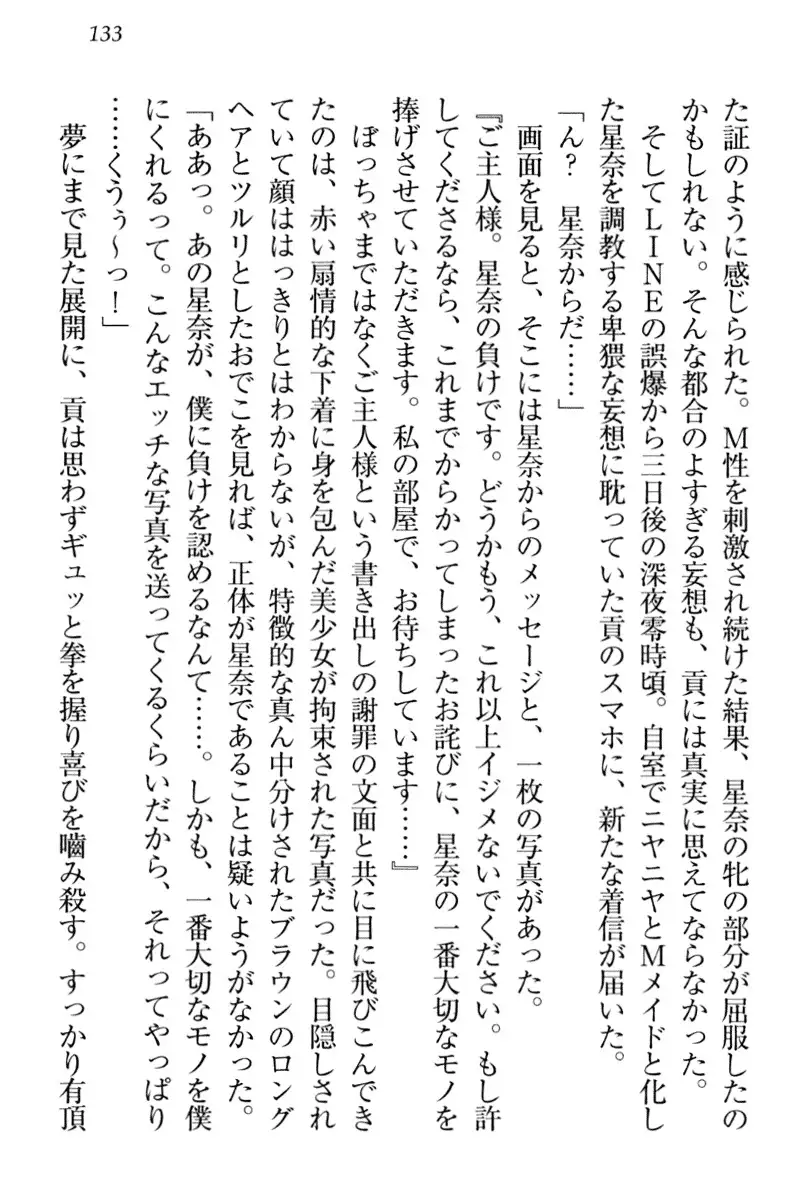 133
た証のように感じられた。M性を刺激され続けた結果、星奈の牝の部分が屈服したの
かもしれない。そんな都合のよすぎる妄想も、貢には真実に思えてならなかった。
そしてLINEの誤爆から三日後の深夜零時頃。自室でニヤニヤとMメイドと化し
た星奈を調教する卑猥な妄想に耽っていた貢のスマホに、新たな着信が届いた。
「ん？　星奈からだ……」
画面を見ると、そこには星奈からのメッセージと、一枚の写真があった。
『ご主人様。星奈の負けです。どうかもう、これ以上イジメないでください。もし許
してくださるなら、これまでからかってしまったお詫びに、星奈の一番大切なモノを
捧げさせていただきます。私の部屋で、お待ちしています……』
ぼっちゃまではなくご主人様という書き出しの謝罪の文面と共に目に飛びこんでき
たのは、赤い扇情的な下着に身を包んだ美少女が拘束された写真だった。目隠しされ
ていて顔ははっきりとはわからないが、特徴的な真ん中分けされたブラウンのロング
ヘアとツルリとしたおでこを見れば、正体が星奈であることは疑いようがなかった。
「ああっ。あの星奈が、僕に負けを認めるなんて……。しかも、一番大切なモノを僕
にくれるって。こんなエッチな写真を送ってくるくらいだから、それってやっぱり
……くうぅ～っ！」
夢にまで見た展開に、貢は思わずギュッと拳を握り喜びを噛み殺す。すっかり有頂